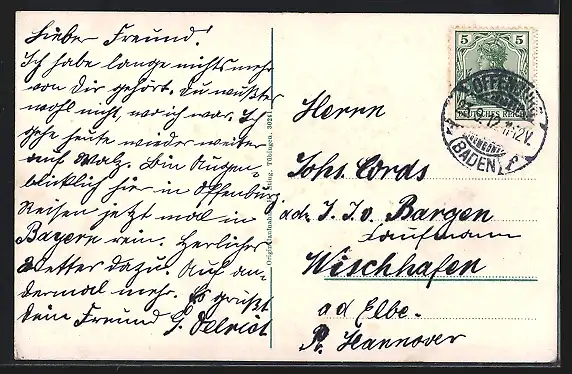 Lieber Freund!
Ich habe lange nichts mehr
von Dir gehört. Du wußtest
wohl nicht, wo ich war. Ich
gehe heute wieder weiter
auf Walz. Bin Augen-
blicklich hier in Offenburg
Reisen jetzt mal in
Bayern rein. Herliches
Wetter dazu. Auf an-
dermal mehr. Es grüßt
Dein Freund G.
Originalaufnahme Tübingen.
5 5
DEUTSCHES REICH
OFFENBURG
11-12V.
(BADEN)
Herrn
Johs. Cords
adr. J. J. v. Bargen
Kaufmann
Wischhafen
a d Elbe.
Pr. Hannover